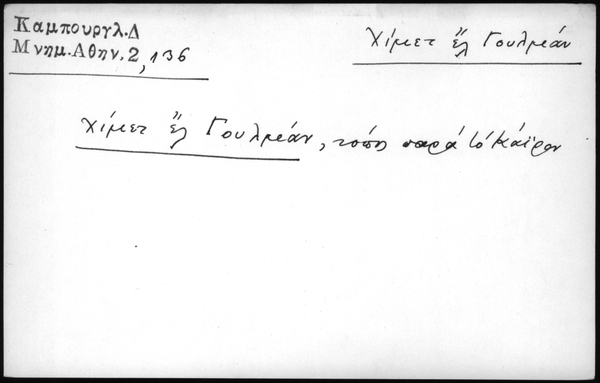 Καμπουργλ.Δ
Μνημ.Αθην.2,136
Χίμετ ἔλ Γουλμεάν
Χίμετ ἔλ Γουλμεάν, τοπς παρά τό Κάϊρον